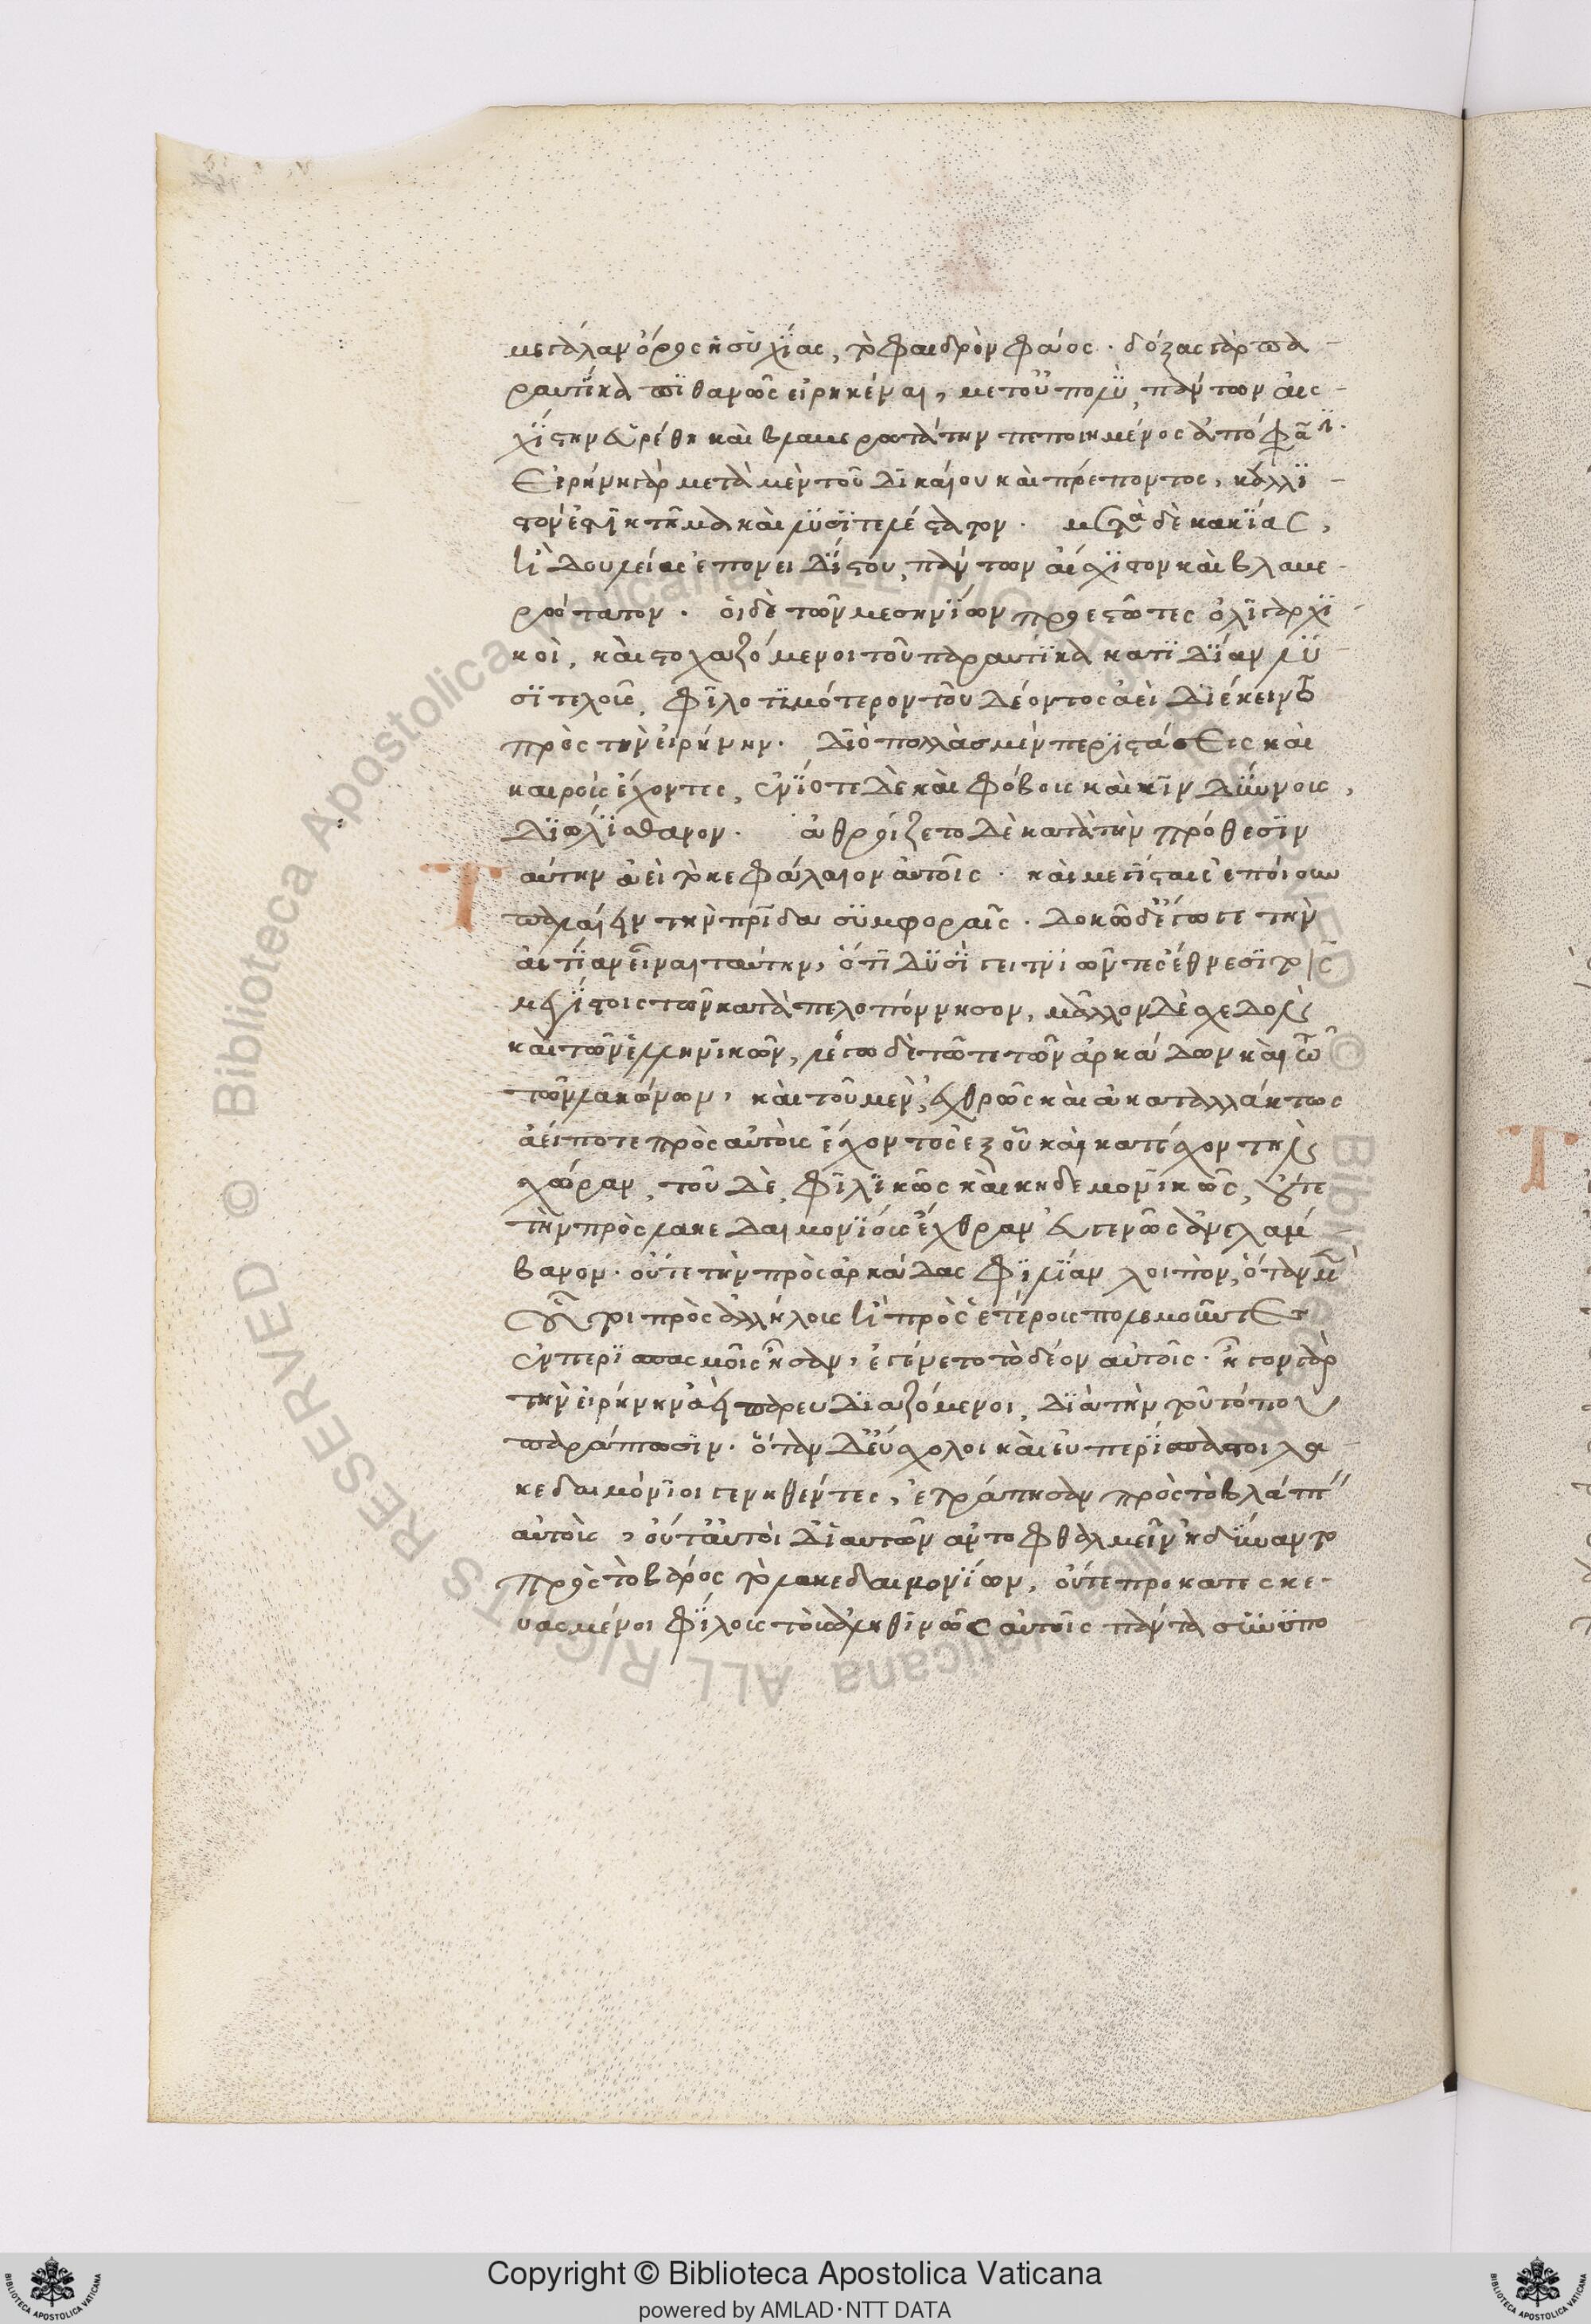 μεγάλαν όρος ησυχΐας, το φαιδρὸν φάος. δόξας γὰρ πα
ραυτίκα πϊθανῶς εἰρηκέναι, μετοῦ πολὺ πάντων αἰσ
χΐστην εὑρέθη καὶ βλαμερωτάτην πεποιημένος ἀπόφα
Εἰρήνη γὰρ μετὰ μὲν τοῦ Δικαίου καὶ πρέποντος, κάλλϊ
στόν ἐστϊ κτῆμα καὶ λϋσϊτελέστατον. μετὰ δὲ κακΐας,
ἢ Δουλείας ἐπονειΔΐστου, πάντων αἴσχϊστον καὶ βλαμε
ρώτατον. ὁι δὲ τῶν μεσηνΐων προεστῶτες ὀλιγαρχϊ
κοὶ, καὶ στοχαζόμενοι τοῦ παραυτΐκα κατϊΔΐαν λϋ
σϊτελοῦς, φιλοτϊμότερον τοῦ Δέοντος ἀεὶ Διέκειντο
πρὸς τὴν εἰρήνην. Διὸ πολλὰς μὲν περϊστάσεις καὶ
καιροὺς ἔχοντες, ἐνΐοτε Δὲ καὶ φόβους καὶ κινΔΰνους,
Δϊωλΐσθανον. ἀθροίζετο Δὲ κατὰ τὴν πρόθεσϊν
αύτην ἀεὶ το κεφάλαιον ἀυτοῖς. καὶ μεγΐσταις ἐποίουν
παλαίειν τὴν πρΐδα σϋμφοραῖς. Δοκῶ δ' ἔγωγε τὴν
αἰτΐαν εἶναι ταύτην, ὅτϊ Δϋσϊ γειτνϊῶντες ἔθνεσϊ τοῖς
μεγΐστοις τῶν κατὰ πελοπόννησον, μᾶλλον Δὲ σχεΔον
καὶ τῶν ἑλληνϊκῶν, λέγω δὲ τῶ τε τῶν ἀρκάΔων καὶ τῶ
τῶν λακώνων, καὶ τοῦ μὲν ἐχθρῶς καὶ ἀκαταλλάκτως
ἀείποτε πρὸς αὐτοὺς ἔχοντος ἐξ οὗ καὶ κατέσχον την
χώραν, τοῦ Δὲ, φϊλϊκῶς καὶ κηδεμονϊκῶς, οὔτε
τὴν πρὸς λακεΔαιμονΐους ἔχθραν εὐγενῶς ἀνελάμ
βανον. οὔτε τὴν πρὸς ἀρκάΔας φϊλΐαν λοιπὸν, ὅταν μὲν
οὗτοι πρὸς ἀλλήλους ἢ πρὸς ἑτέρους πολεμοῦντες
ἐν περϊσπασμοῖς ἦσαν, ἐγένετο τὸ δέον αὐτοῖς. ἦγον γὰρ
τὴν εἰρήνην ἀεὶ παρευΔϊαζόμενοι, Διὰ τὴν τοῦ τόπου
παράπτωσϊν. ὅταν Δ' εὔσχολοι καὶ ἐυπερΐσπαστοι λα
κεδαιμόνϊοι γενηθέντες, ἐτράπησαν πρὸς τὸ βλάπτειν
αὐτοὺς, οὔτ' ἀυτοὶ Δι' αυτῶν αντοφθαλμεῖν ἠδΰναντο
πρὸς τὸ βάρος το λακεδαιμονΐων, οὔτε προκατεσκε
υασμένοι φΐλους τοὺς ἀληθινῶς αὐτοῖς πάντα συνϋπο
Copyright © Biblioteca Apostolica Vaticana
powered by AMLAD·NTT DATA